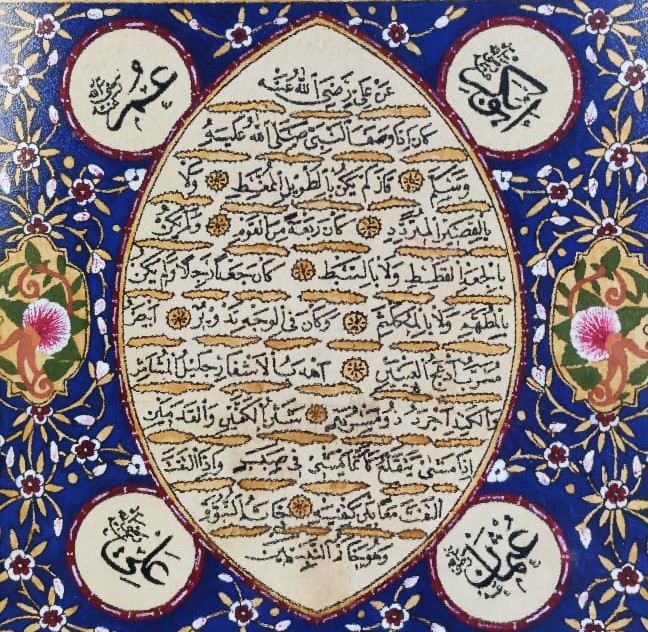 ابو بكر رضي الله عنه
عمر رضي الله عنه
عن علي رضي الله عنه
كان اذا وصف النبي صلى الله عليه
وسلم قال لم يكن بالطويل الممغط ولا
بالقصير المتردد كان ربعة من القوم ولم يكن
بالجعد القطط ولا بالسبط كان جعدا رجلا ولم يكن
بالمطهم ولا بالمكلثم وكان في الوجه تدوير ابيض
مشرب ادعج العينين اهدب الاشفار جليل المشاش
والكتد اجرد ذو مسربة شثن الكفين والقدمين
اذا مشى يتقلع كانما يمشي في صبب واذا التفت
التفت معا بين كتفيه خاتم النبوة
وهو خاتم النبيين
عثمان رضي الله عنه
علي رضي الله عنه